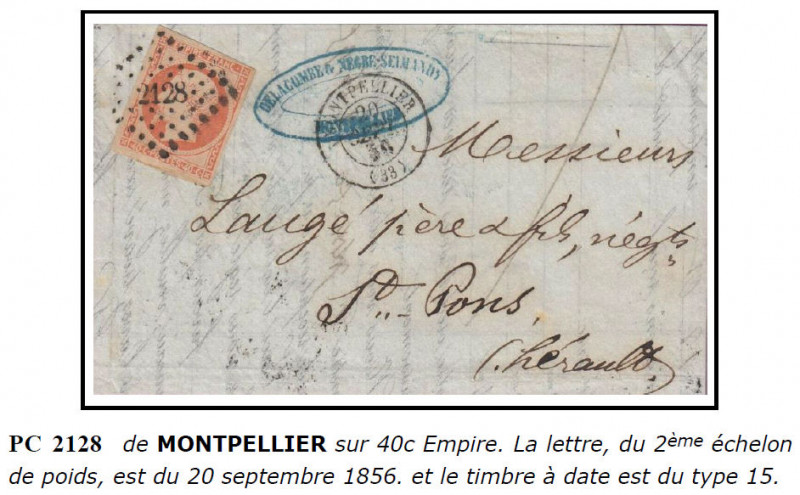 2128
DELACOMBE & NEGRE-SELMANDY
MONTPELLIER
MONTPELLIER
20
SEPT
56
(33)
Messieurs
Laugé, père & fils, négts
St.. Pons,
(hérault)
PC 2128 de MONTPELLIER sur 40c Empire. La lettre, du 2ème échelon
de poids, est du 20 septembre 1856. et le timbre à date est du type 15.